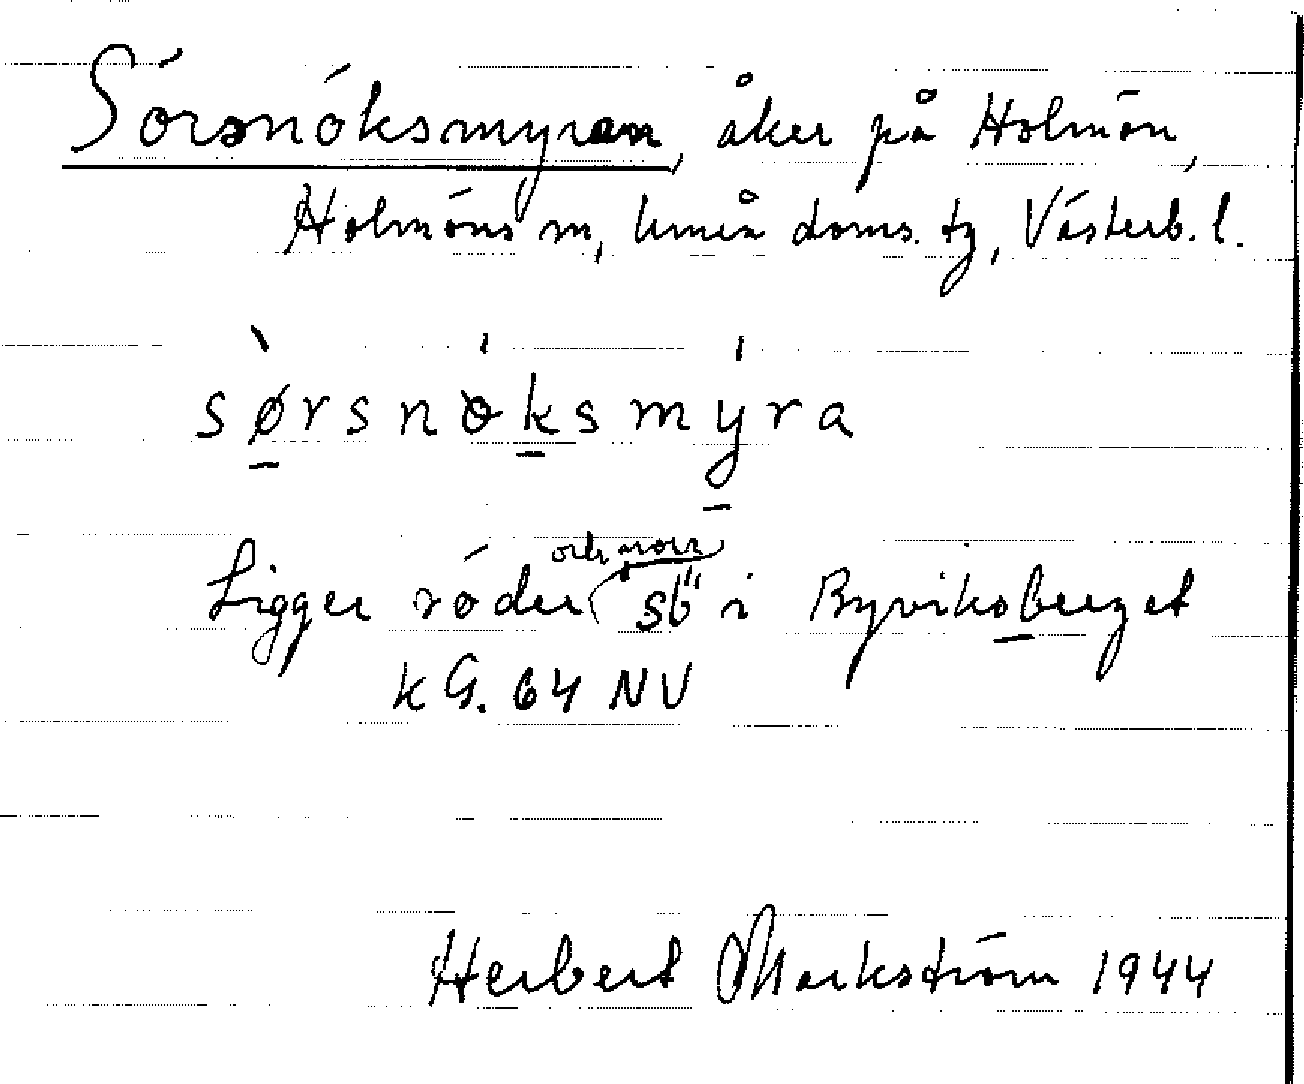 Sörsnöksmyran, åker på Holmön,
Holmöns sn, Umeå doms. tg, Västerb. l.
sørsnøksmyra
Ligger söder och norr
"sb" i Byviksberget
KG. 64 NV
Herbert Markström 1944